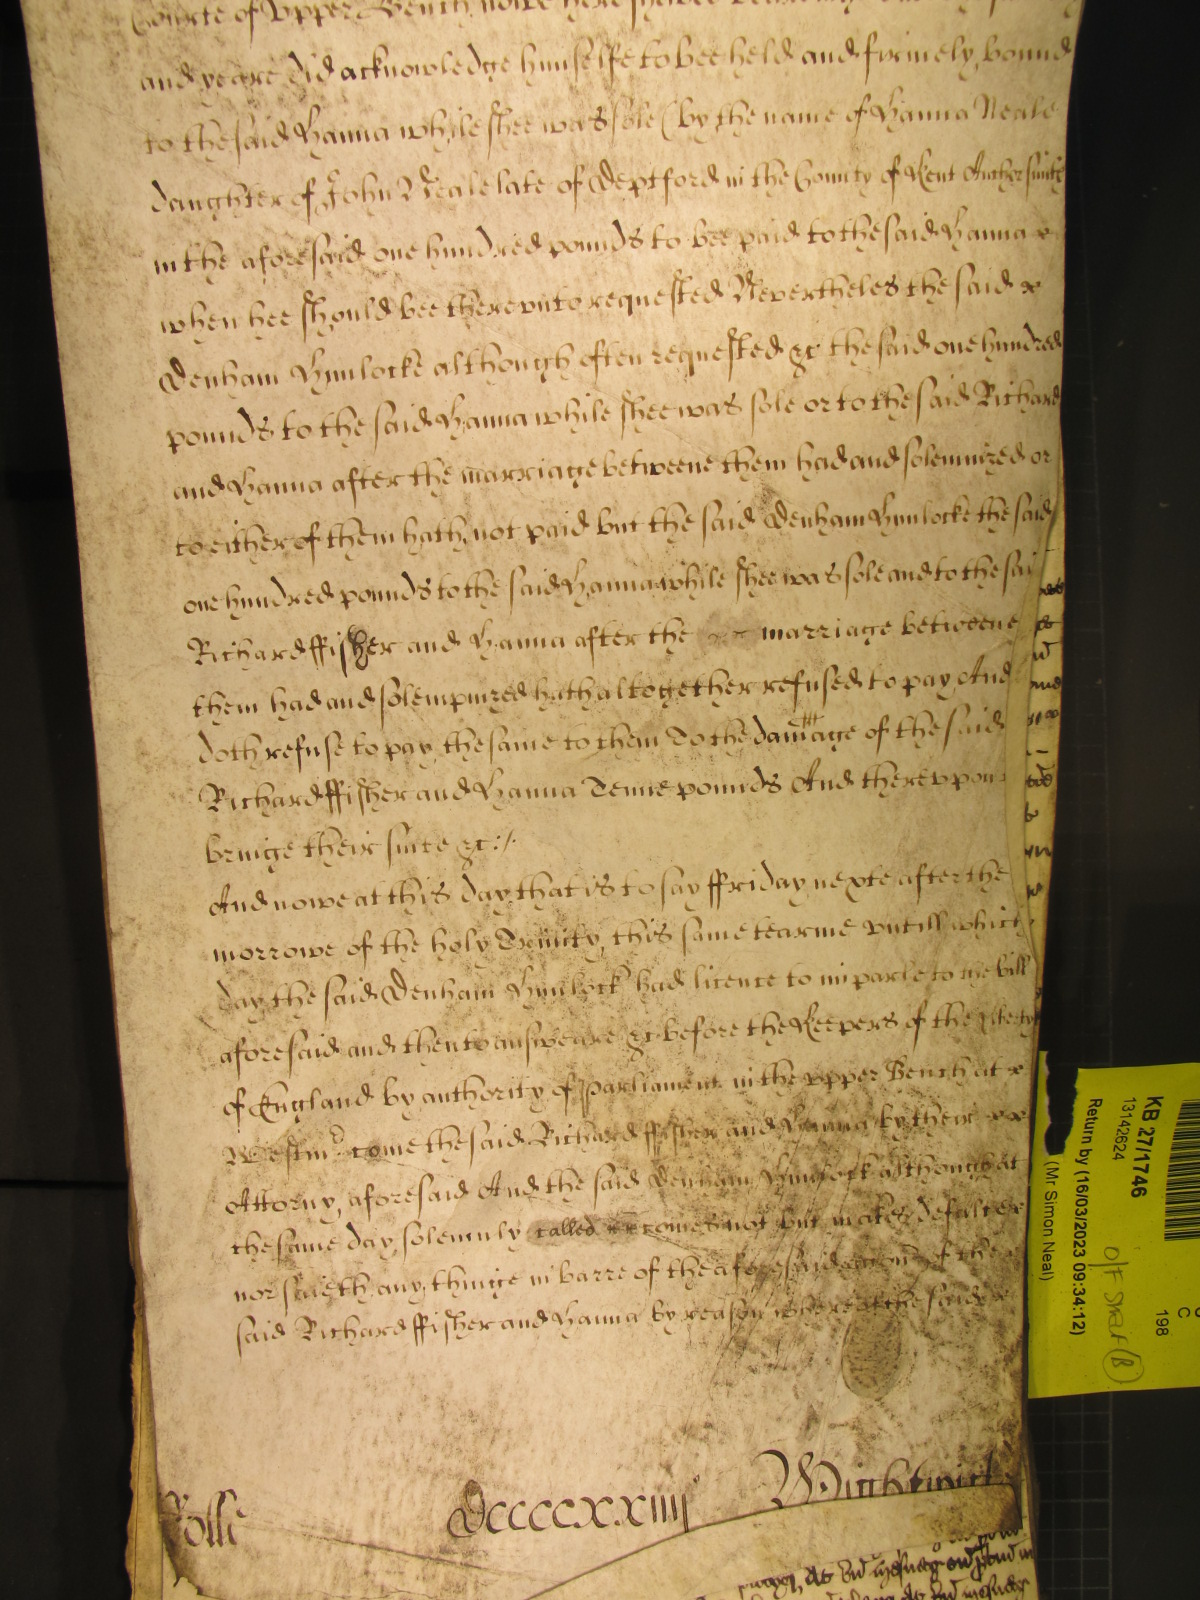 Courte of Upper Bench nowe here shewed
and yeare did acknowledge himselfe to bee held and firmely bound
to the said Hanna while shee was sole (by the name of Hanna Neale
daughter of John Neale late of Deptford in the County of Kent
in the aforesaid one hundred pounds to bee paid to the said Hanna x
when hee should bee therevnto requested Neverthelesthe said x
Denham Hunlocke although often requested &c the said one hundred
pounds to the said Hanna while shee was sole or to the said Richard
and Hanna after the marriage betweene them had and solemnized or
to either of them hath not paid but the said Denham Hunlocke the said
one hundred pounds to the said Hanna while shee was sole and to the sai
Richard ffisher and Hanna after the marriage betweene
them had and solempnized hath altogether refused to pay And
doth refuse to pay the same to them To the damage of the said
Richard ffisher and Hanna Tenne pounds And therevpon
bringe their suite &c:/
And nowe at this day that is to say ffriday nexte after the
morrowe of the holy Trinity this same tearme vntill which
day the said Denham Hunlock had licence to imparle to the bill
aforesaid and then to answeare &c before the Keepers of the liberty
of England by authority of Parliament in the vpper Bench at x
Westmr come the said Richard ffisher and Hanna by their xx
Attorny aforesaid And the said Denham Hunlock although at
the same day solemnly called comes not but makes defalte x
nor saieth any thinge in barre of the aforesaid accion of the
said Richard ffisher and Hanna by reason whereof the said
Rolle Dccccxxiiij Wightwick
KB 27/1746
13142624
Return by (16/03/2023 09:34:12)
(Mr Simon Neal)
C
198